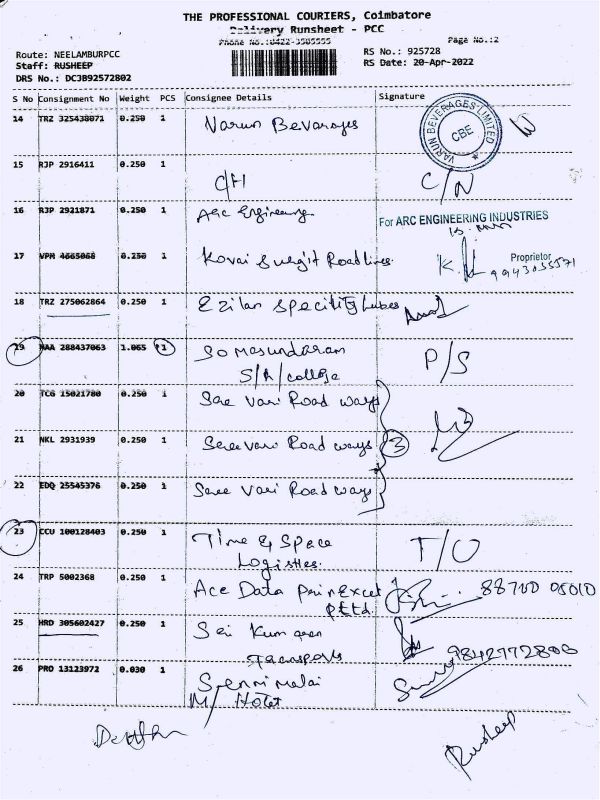 THE PROFESSIONAL COURIERS, Coimbatore
Delivery Runsheet - PCC
Phone No.:0422-3505555
Page No.:2
Route: NEELAMBURPCC
RS No.: 925728
Staff: RUSHEEP
RS Date: 20-Apr-2022
DRS No.: DCJB92572802
S No Consignment No Weight PCS Consignee Details Signature
14 TRZ 325438071 0.250 1 Varun Bevarages
VARUN BEVERAGES LIMITED
CBE
15 RJP 2916411 0.250 1
C/H C/N
16 RJP 2921871 0.250 1 Arc Engineering
For ARC ENGINEERING INDUSTRIES
17 VPM 4665068 0.250 1 Kovai Surgit Roadlines.
Proprietor
9943035571
18 TRZ 275062864 0.250 1 Ezilan Specility Lubes
19 MAA 288437063 1.065 1 Somasundaram P/S
S/A/college
20 TCG 15021780 0.250 1 Sree Vari Road ways
21 NKL 2931939 0.250 1 Sree vari Road ways 3
22 EDQ 25545376 0.250 1 Sree Vari Road ways
23 CCU 100128403 0.250 1 Time & Space T/O
Logistics.
24 TRP 5002368 0.250 1 Ace Data PrinExcel 88700 05010
PLtd.
25 HRD 305602427 0.250 1 Sri Kumaran 9842772800
Transports
26 PRO 13123972 0.030 1 Sennimalai
M/ Hotel
Rusheep